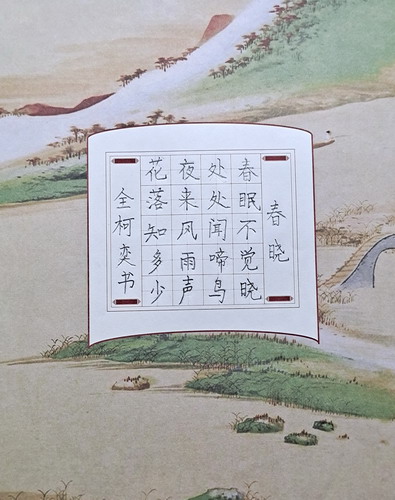 春晓
春眠不觉晓
处处闻啼鸟
夜来风雨声
花落知多少
全柯奕书